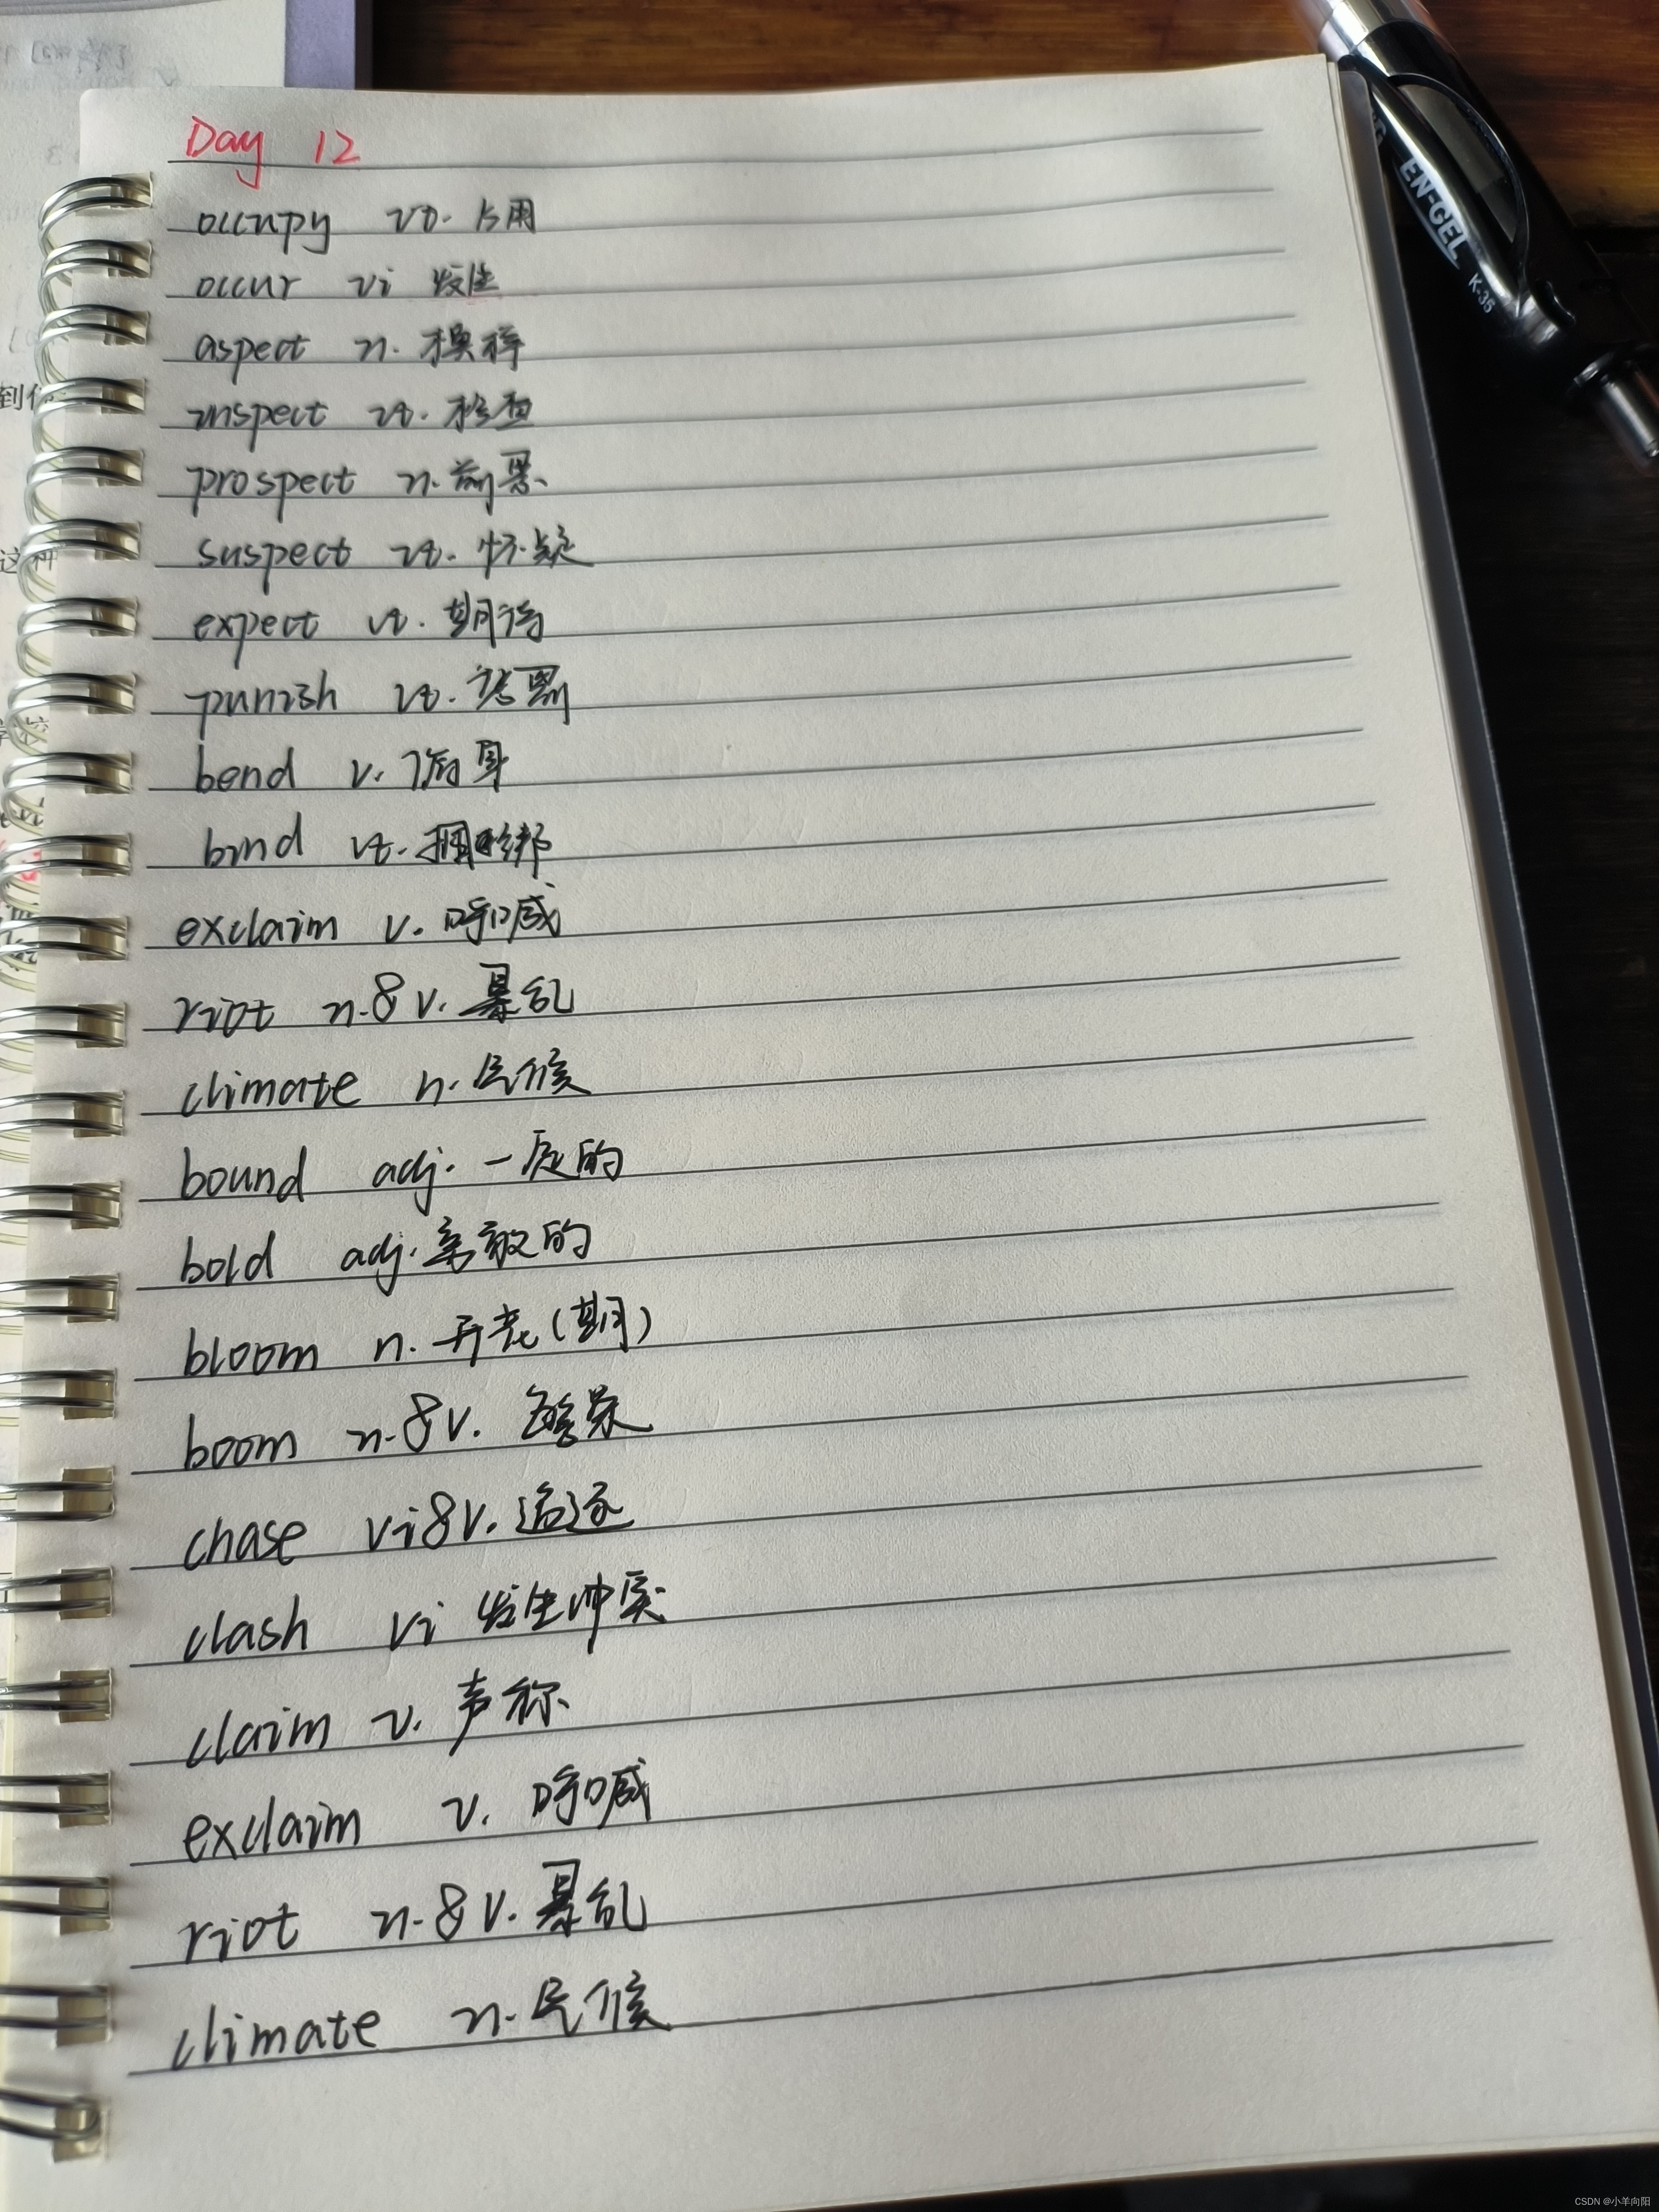 Day 12
occupy vt. 占用
occur vi 发生
aspect n. 模样
inspect vt. 检查
prospect n. 前景
suspect vt. 怀疑
expect vt. 期待
punish vt. 惩罚
bend v. 俯身
bind vt. 捆绑
exclaim v. 呼喊
riot n.&v. 暴乱
climate n. 气候
bound adj. 一定的
bold adj. 勇敢的
bloom n. 开花(期)
boom n.&v. 繁荣
chase vi&v. 追逐
clash vi 发生冲突
claim v. 声称
exclaim v. 呼喊
riot n.&v. 暴乱
climate n. 气候
EN-GEL
K-35
到
这种
CSDN @小羊向阳